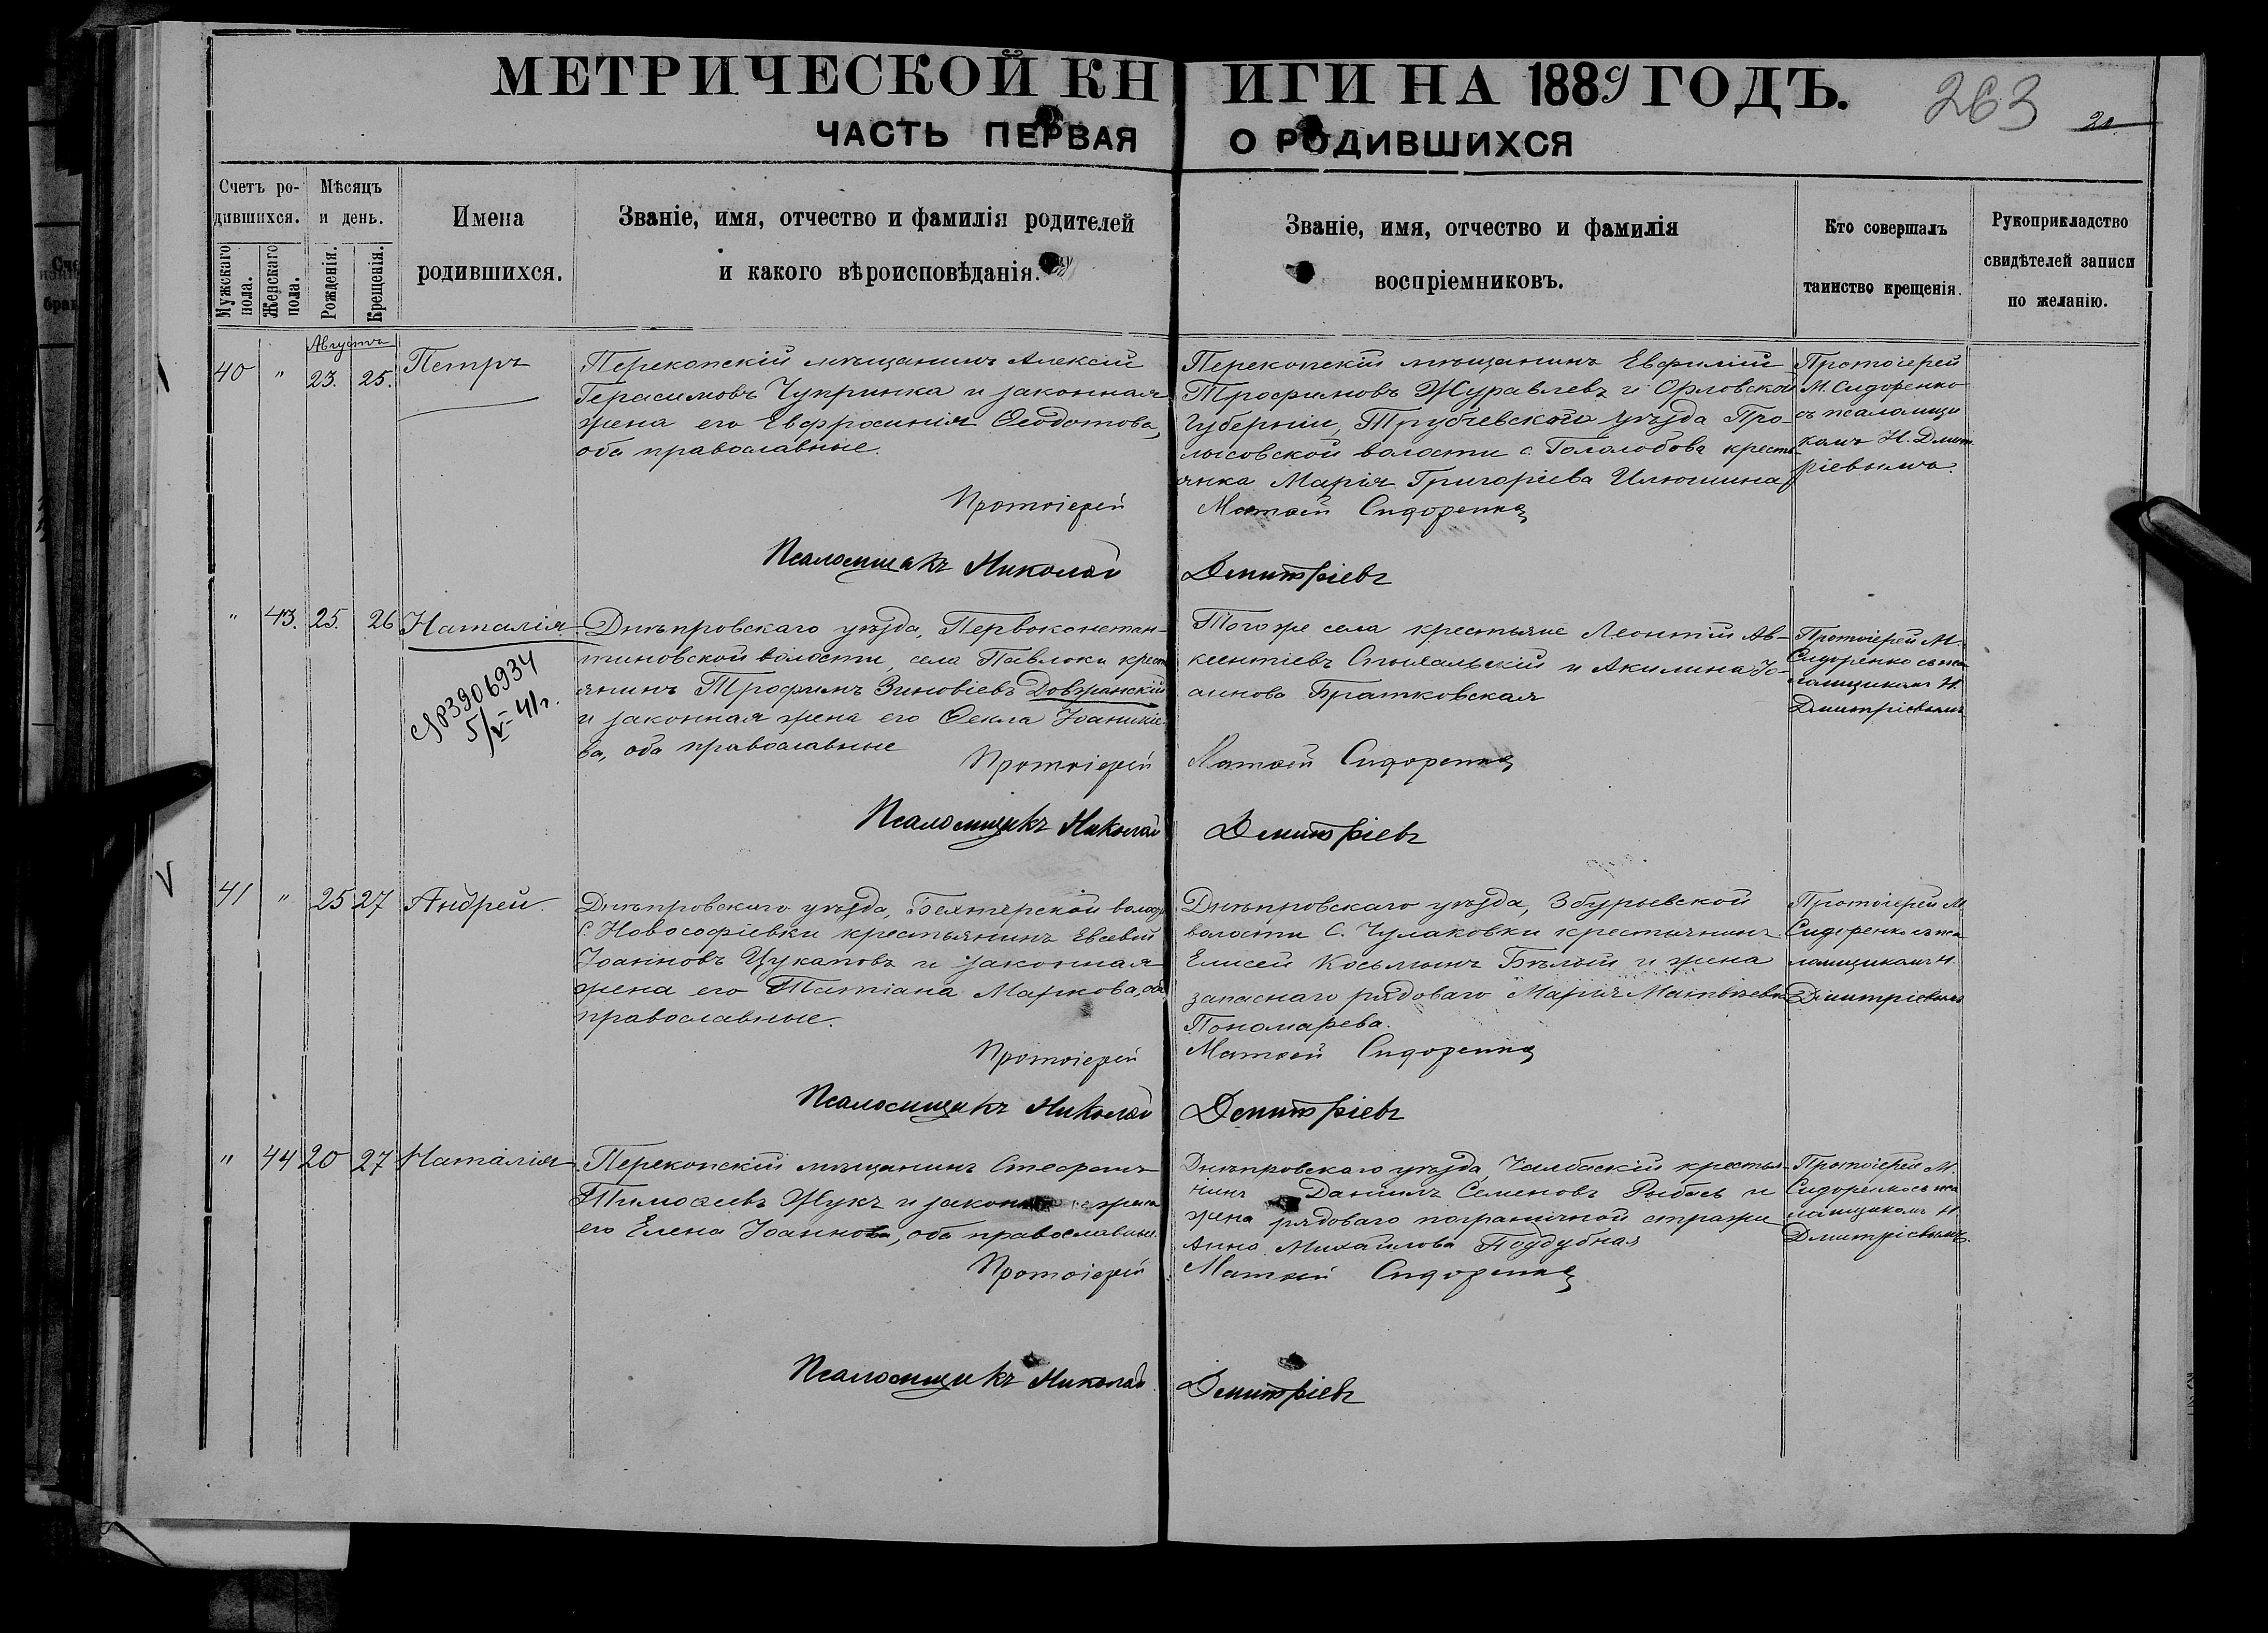 МЕТРИЧЕСКОЙ КНИГИ НА 1889 ГОДЪ.
263
20.
ЧАСТЬ ПЕРВАЯ О РОДИВШИХСЯ
Счетъ ро-
дившихся.
Мѣсяцъ
и день.
Имена
родившихся.
Званіе, имя, отчество и фамилія родителей
и какого вѣроисповѣданія.
Званіе, имя, отчество и фамилія
воспріемниковъ.
Кто совершалъ
таинство крещенія.
Рукоприкладство
свидѣтелей записи
по желанію.
Мужскаго
пола.
Женскаго
пола.
Рожденія.
Крещенія.
Августъ
40 " 23. 25. Петръ
Перекопскій мѣщанинъ Алексій
Герасимовъ Чупринка и законная
жена его Евфросинія Ѳеодотова,
оба православные.
Перекопскій мѣщанинъ Евфимій
Трофимовъ Журавлевъ и Орловской
Губерніи, Трубчевскаго уѣзда Про-
лысовской волости с. Гололобова кресть-
янка Марія Григоріева Илюшина
Протоіерей
М. Сидоренко
съ псаломщи
комъ Н. Дмит
ріевымъ.
Протоіерей Матѳей Сидоренко
Псаломщикъ Николай Дмитріевъ
" 43. 25. 26 Наталія
Днѣпровскаго уѣзда, Первоконстан-
тиновской волости, села Павловки крест
янинъ Трофимъ Зиновіевъ Довжанскій
и законная жена его Ѳекла Іоанникіе-
ва, оба православные
3906934
5/V-41г.
Того же села крестьяне Леонтій Ав-
ксентіевъ и Акилина Іо-
аннова Братковская
Протоіерей М.
Сидоренко съ пса
ломщикомъ Н.
Дмитріевымъ
Протоіерей Матѳей Сидоренко
Псаломщикъ Николай Дмитріевъ
V
41 " 25 27 Андрей.
Днѣпровскаго уѣзда, Бехтерской волос
с. Новософіевки крестьянинъ Евсевій
Іоанновъ Цукановъ и законная
жена его Татіана Маркова, оба
православные.
Днѣпровскаго уѣзда, Збурьевской
волости с. Чулаковки крестьянинъ
Елисей Косьминъ Бѣлый и жена
запаснаго рядоваго Марія Матвѣева
Пономарева.
Протоіерей М
Сидоренко съ пса
ломщикомъ Н
Дмитріевымъ
Протоіерей Матѳей Сидоренко
Псаломщикъ Николай Дмитріевъ
" 44 20 27 Наталія
Перекопскій мѣщанинъ Стефанъ
Тимоѳеевъ Жукъ и законная жена
его Елена Іоаннова, оба православные.
Днѣпровскаго уѣзда, Чалбаскій крестья-
нинъ Даніилъ Семеновъ Рыбась и
жена рядоваго пограничной стражи
Анна Михайлова Поддубная
Протоіерей М.
Сидоренко съ пса
ломщикомъ Н.
Дмитріевымъ.
Протоіерей Матѳей Сидоренко
Псаломщикъ Николай Дмитріевъ